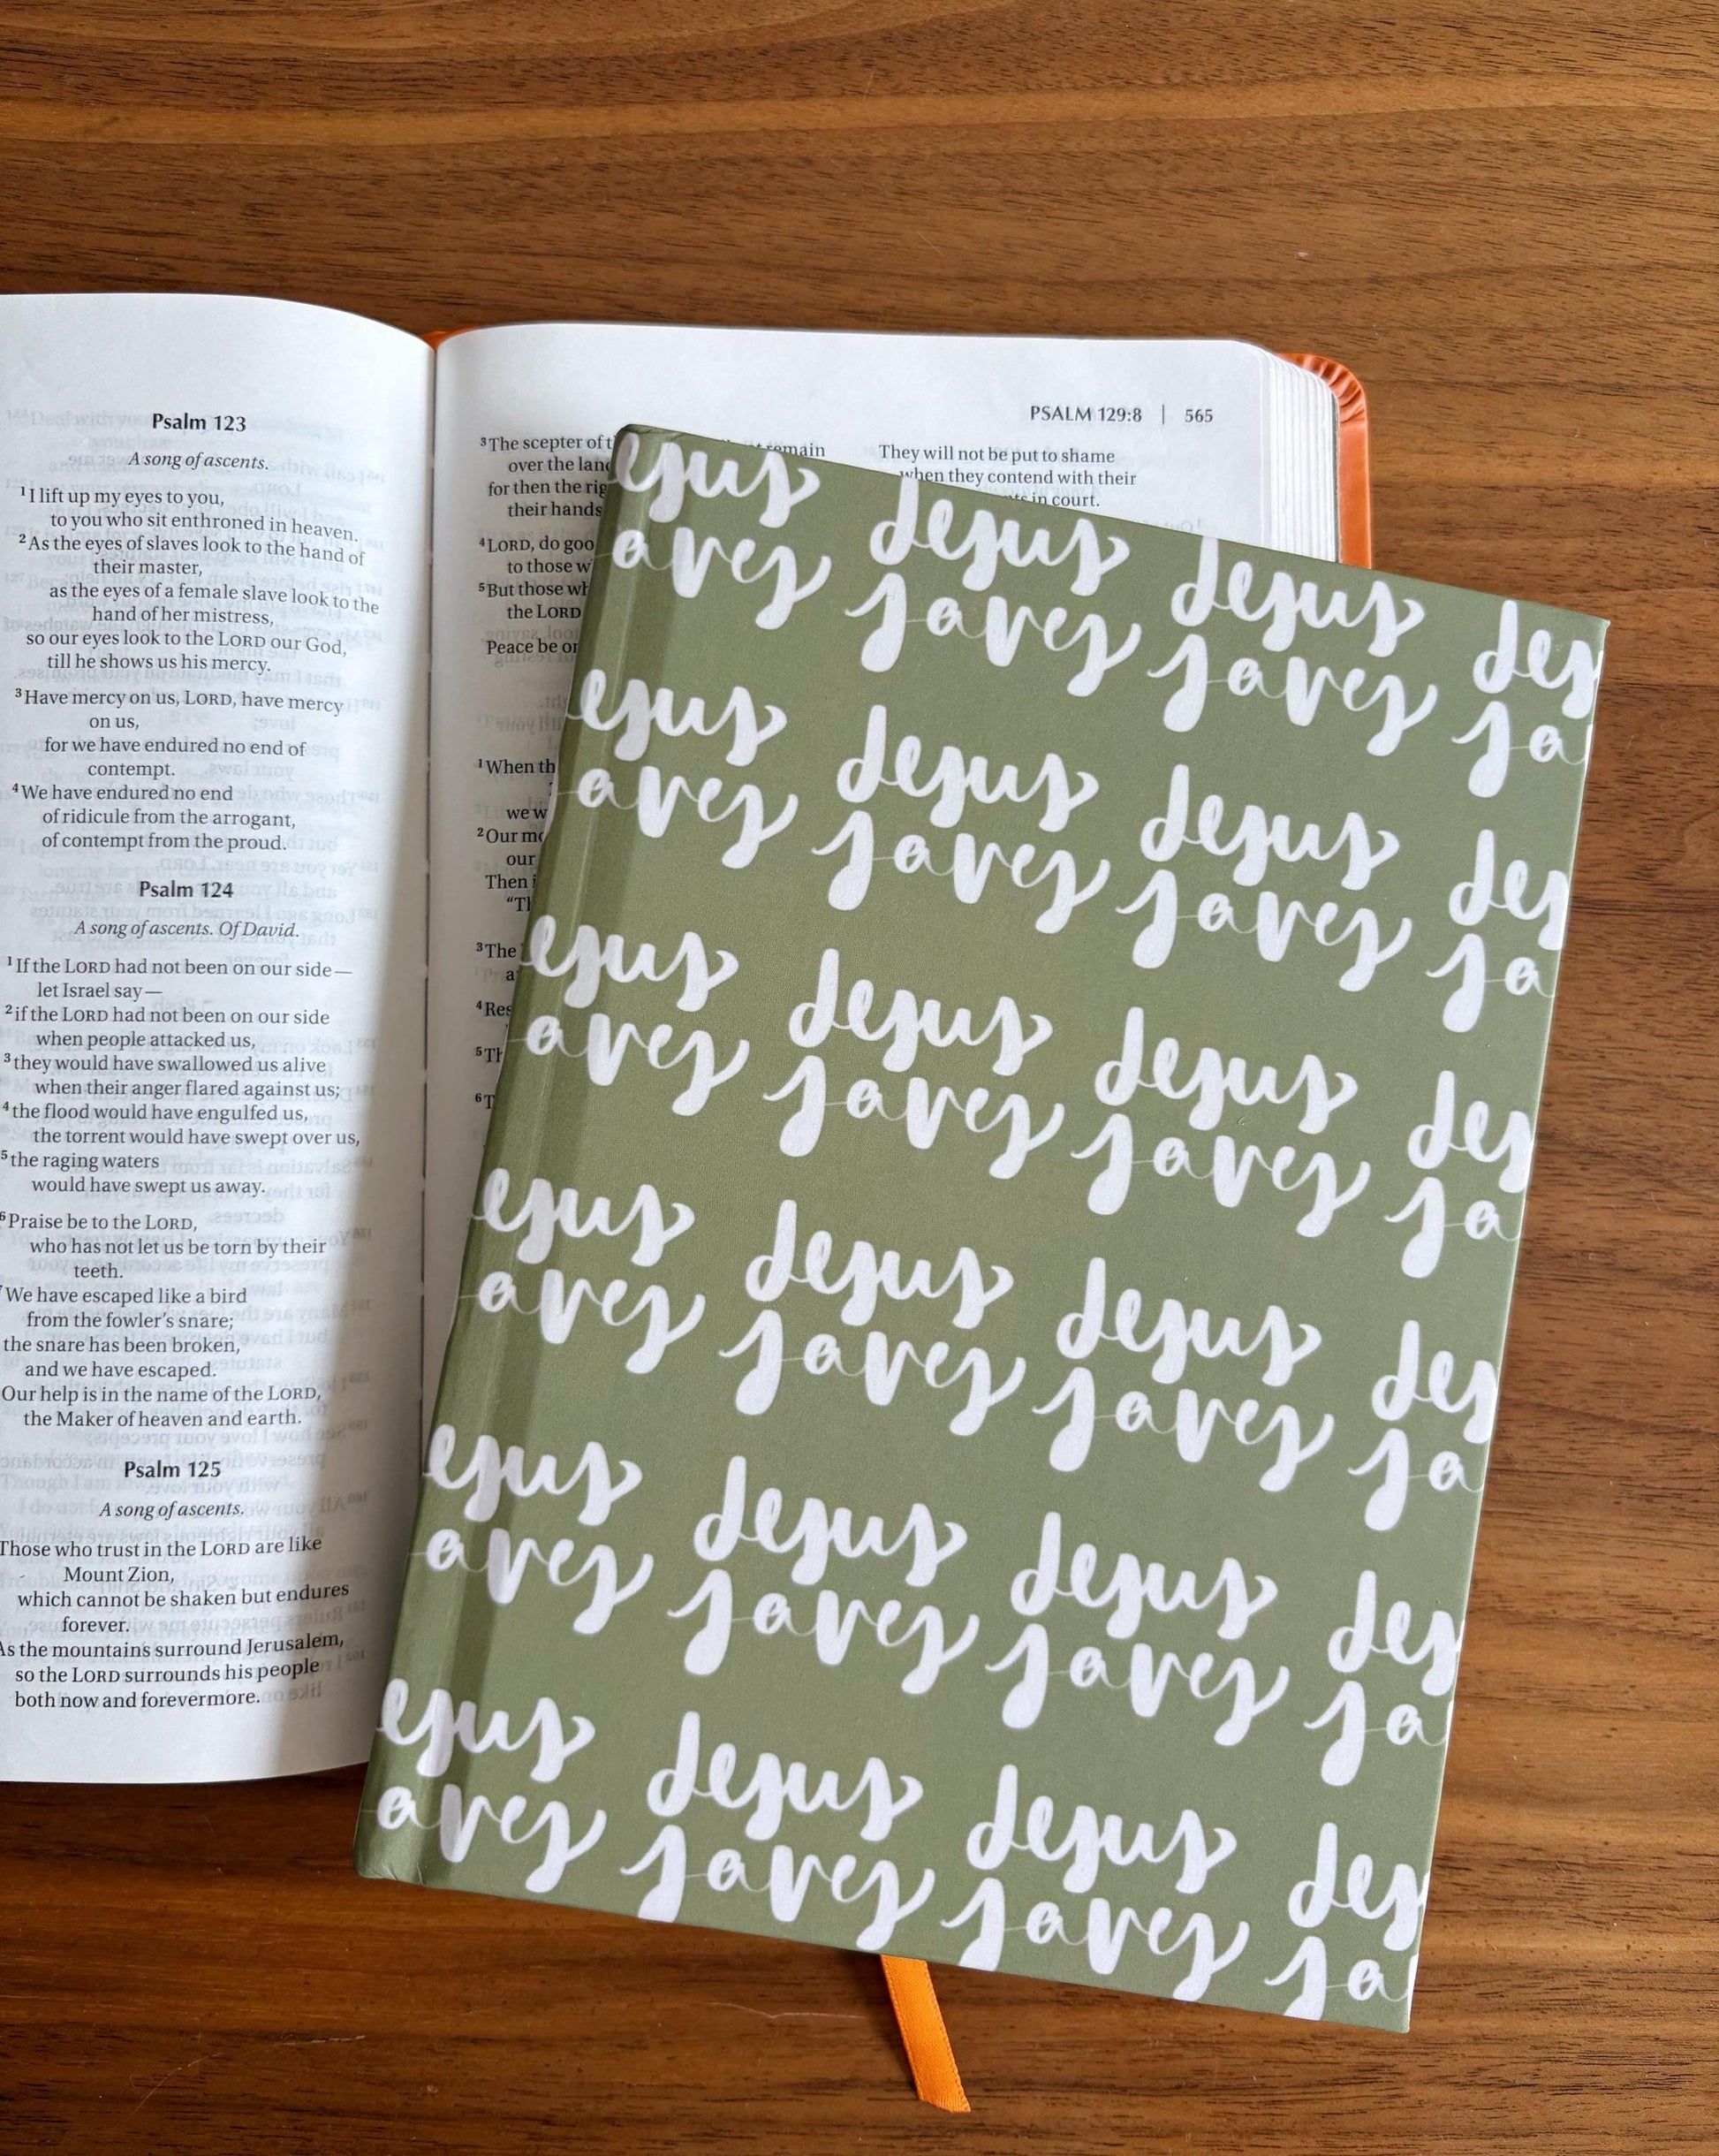 Psalm 123
A song of ascents.
1 I lift up my eyes to you,
to you who sit enthroned in heaven.
2 As the eyes of slaves look to the hand of
their master,
as the eyes of a female slave look to the
hand of her mistress,
so our eyes look to the LORD our God,
till he shows us his mercy.
3 Have mercy on us, LORD, have mercy
on us,
for we have endured no end of
contempt.
4 We have endured no end
of ridicule from the arrogant,
of contempt from the proud.
Psalm 124
A song of ascents. Of David.
1 If the LORD had not been on our side—
let Israel say—
2 if the LORD had not been on our side
when people attacked us,
3 they would have swallowed us alive
when their anger flared against us;
4 the flood would have engulfed us,
the torrent would have swept over us,
5 the raging waters
would have swept us away.
6 Praise be to the LORD,
who has not let us be torn by their
teeth.
We have escaped like a bird
from the fowler's snare;
the snare has been broken,
and we have escaped.
Our help is in the name of the LORD,
the Maker of heaven and earth.
Psalm 125
A song of ascents.
Those who trust in the LORD are like
Mount Zion,
which cannot be shaken but endures
forever.
As the mountains surround Jerusalem,
so the LORD surrounds his people
both now and forevermore.
PSALM 129:8 | 565
3 The scepter of
over the
for then the
their hands
4 LORD, do
to those
5 But those
the LORD
Peace be
1 When
we
2 Our
our
Then
3 The
4
5
6
remain
They will not be put to shame
when they contend with their
in court.
esus Jesus Jesus Jes
aves saves saves sa
esus Jesus Jesus Jes
aves saves saves sa
esus Jesus Jesus Jes
aves saves saves sa
esus Jesus Jesus Jes
aves saves saves sa
esus Jesus Jesus Jes
aves saves saves sa
esus Jesus Jesus Jes
aves saves saves sa